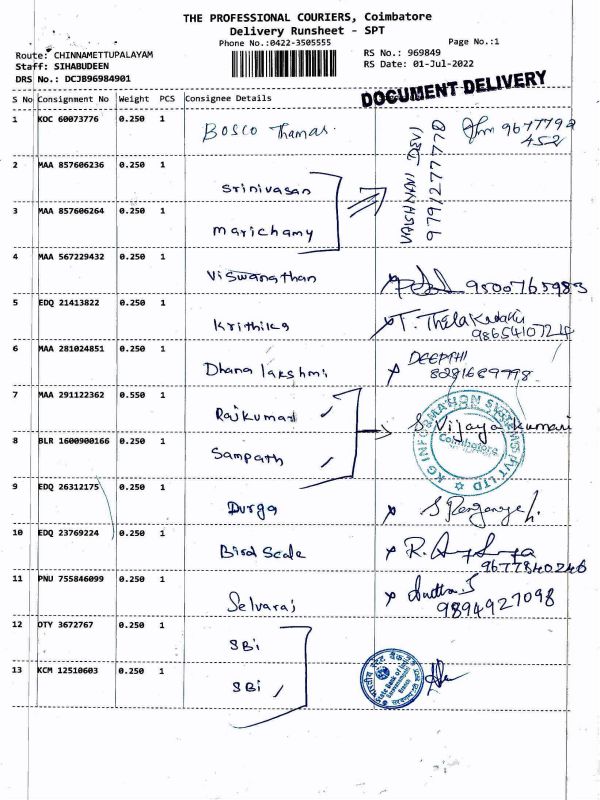 THE PROFESSIONAL COURIERS, Coimbatore
Delivery Runsheet - SPT
Phone No.:0422-3505555
Page No.:1
Route: CHINNAMETTUPALAYAM
Staff: SIHABUDEEN
DRS No.: DCJB96984901
RS No.: 969849
RS Date: 01-Jul-2022
DOCUMENT DELIVERY
S No Consignment No Weight PCS Consignee Details
1 KOC 60073776 0.250 1 Bosco Thamas 9677792
452
VAISHNAVI DEVI
9791277770
2 MAA 857606236 0.250 1 Srinivasan
3 MAA 857606264 0.250 1 Marichamy
4 MAA 567229432 0.250 1 Viswanathan 9500765983
5 EDQ 21413822 0.250 1 Krithika T.
9865410724
6 MAA 281024851 0.250 1 Dhana lakshmi DEEPTHI
8281689798
7 MAA 291122362 0.550 1 Rajkumar S Vijaya Kumari
KG INFORMATION SYSTEMS PVT LTD
Coimbatore
8 BLR 1600900166 0.250 1 Sampath
9 EDQ 26312175 0.250 1 Durga S
10 EDQ 23769224 0.250 1 Bird Scale R.
9677840246
11 PNU 755846099 0.250 1 Selvaraj
9894927098
12 OTY 3672767 0.250 1 SBi
13 KCM 12510603 0.250 1 SBi
State Bank of India